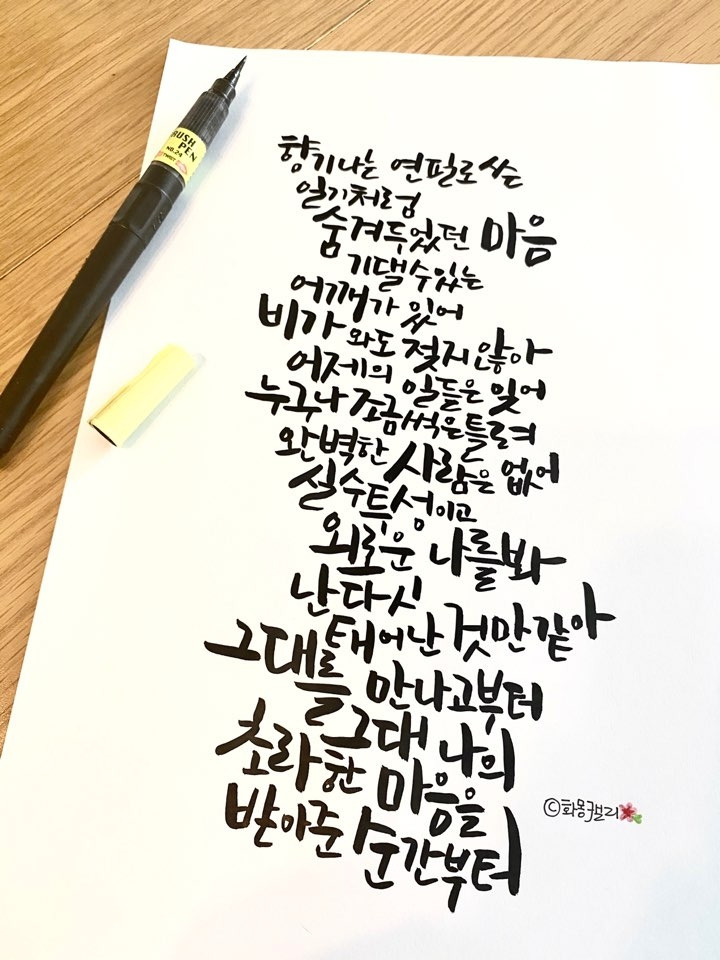 BRUSH
PEN
NO.24
향기나는 연필로 쓰는
일기처럼
숨겨두었던 마음
기댈 수 있는
어깨가 있어
비가 와도 젖지 않아
어제의 일들은 잊어
누구나 조금씩은 틀려
완벽한 사람은 없어
실수투성이고
외로운 나를 봐
난 다시
태어난 것만 같아
그대를 만나고부터
그대 나의
초라한 마음을
받아준 순간부터
©화몽캘리